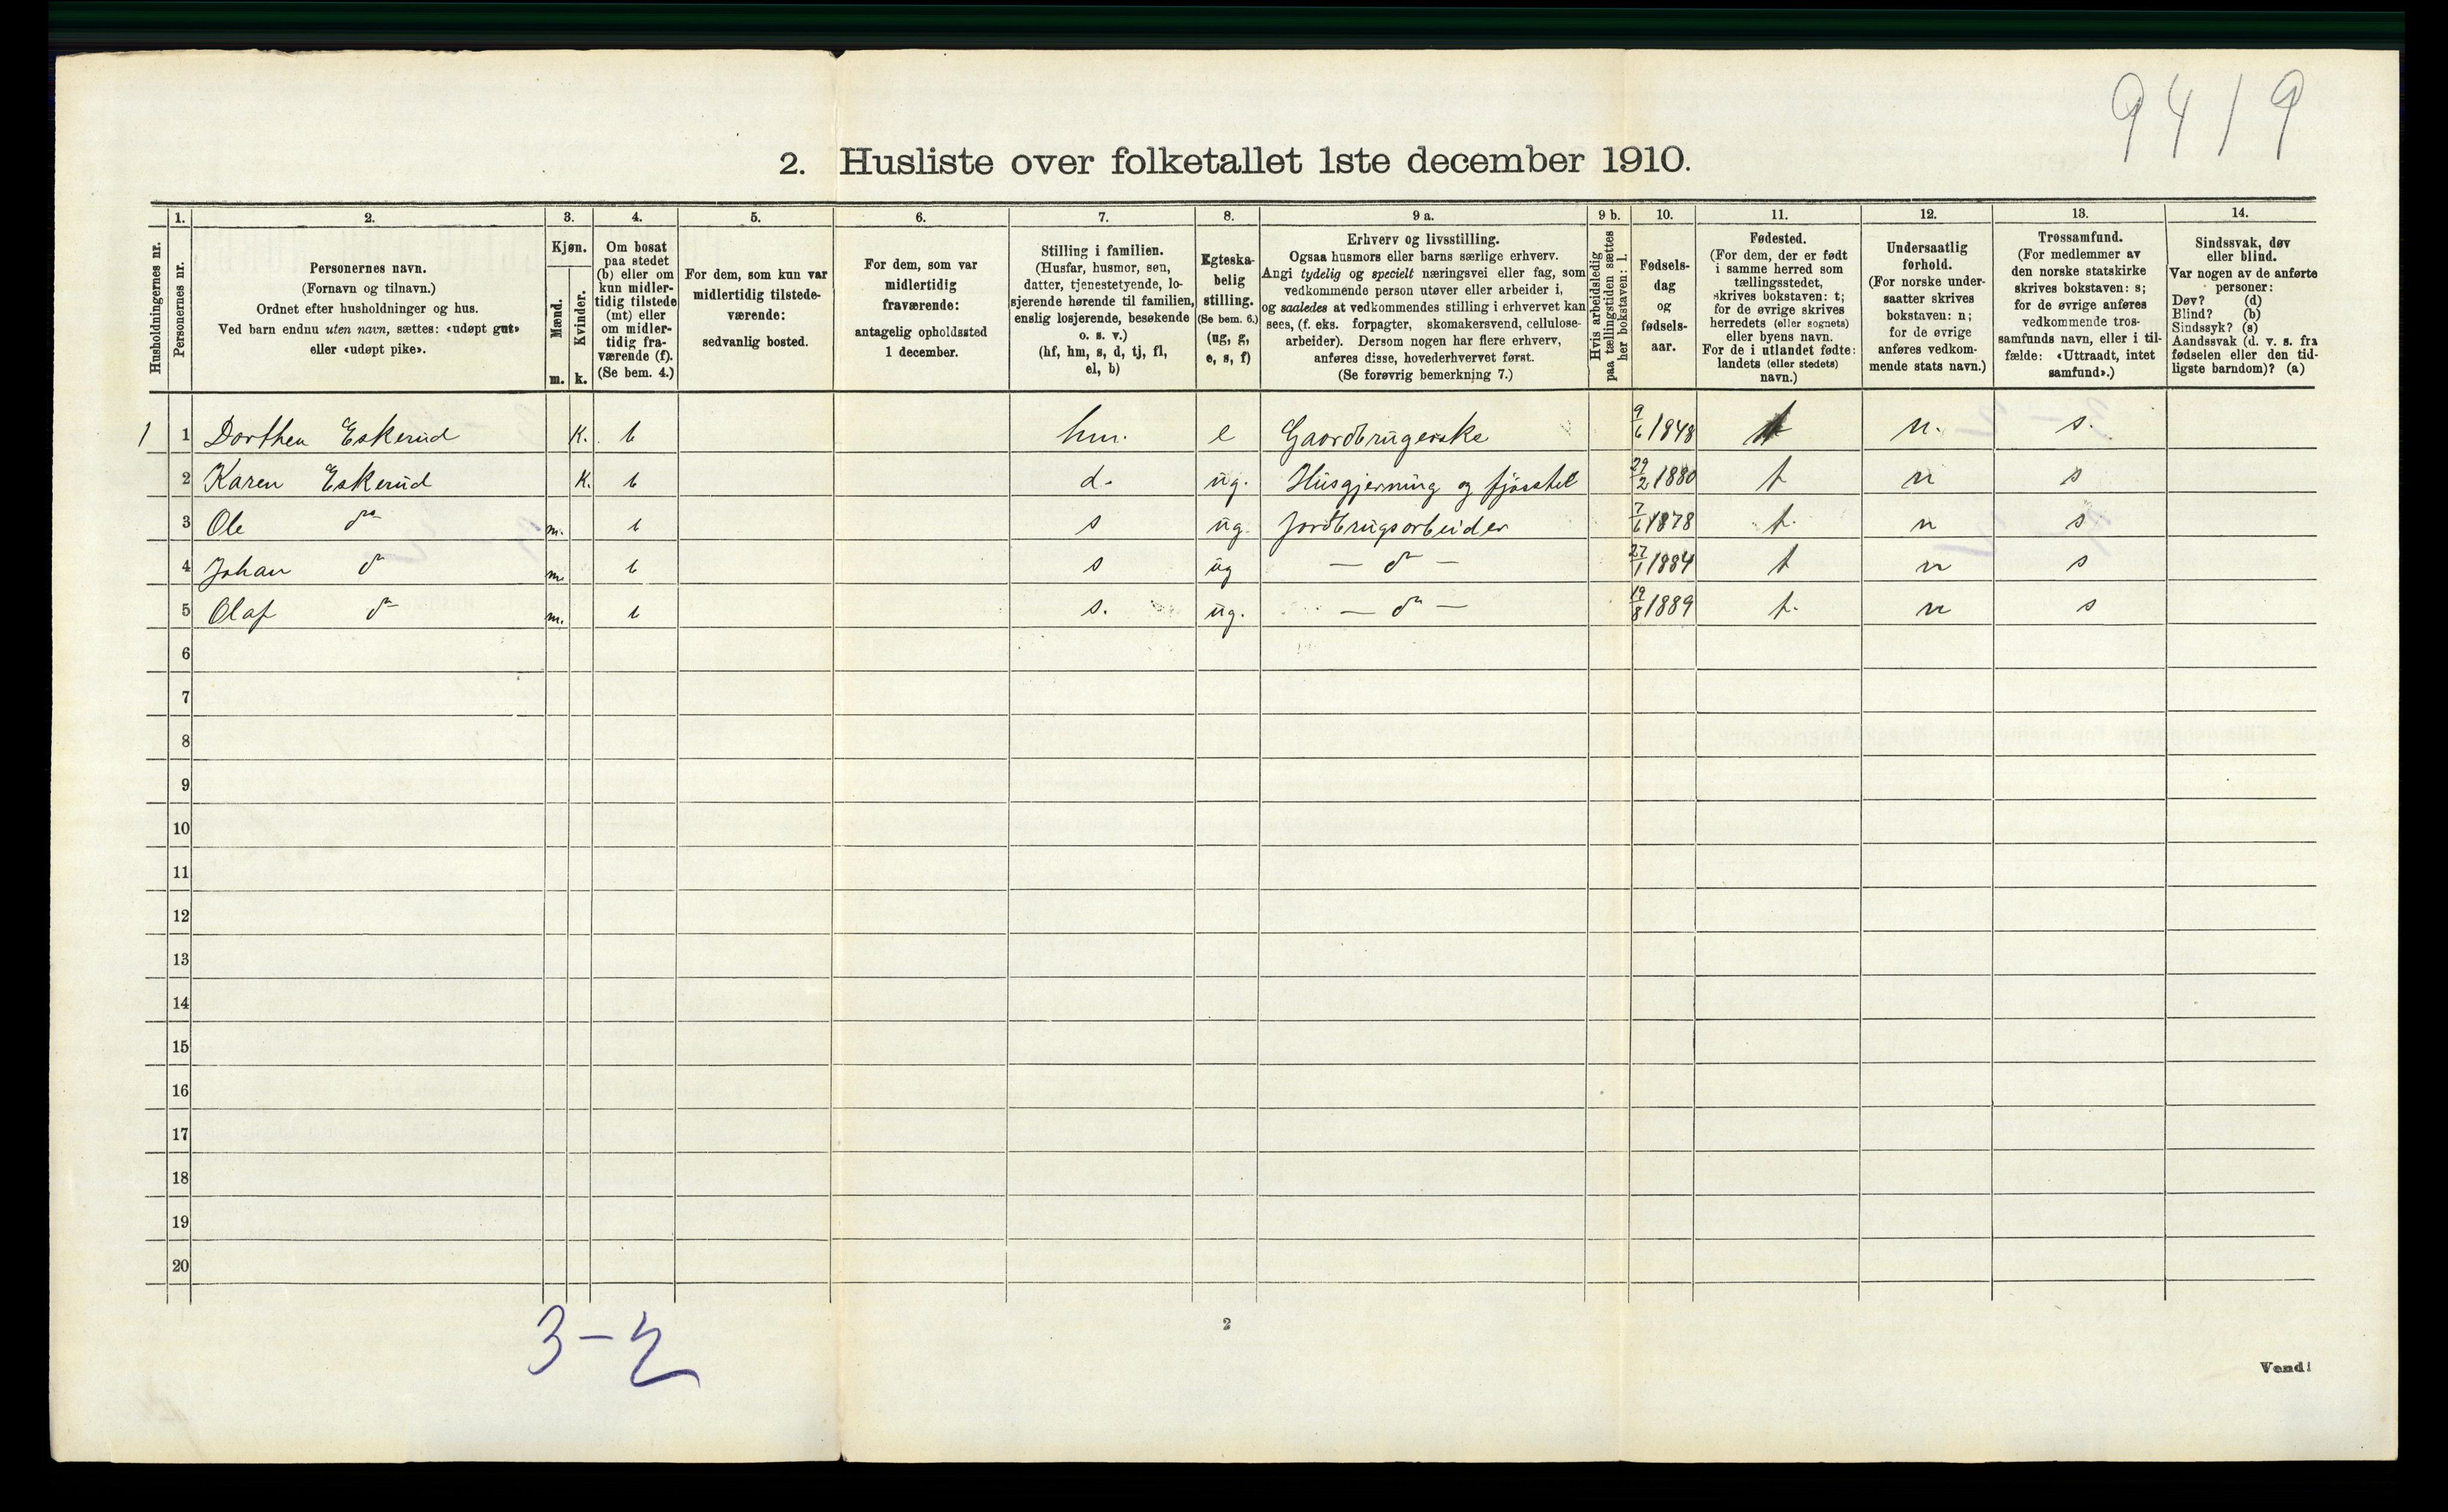 9419
2. Husliste over folketallet 1ste december 1910.
Husholdningernes nr.
1.
Personernes nr.
2.
Personernes navn.
(Fornavn og tilnavn.)
Ordnet efter husholdninger og hus.
Ved barn endnu uten navn, sættes: «udøpt gut»
eller «udøpt pike».
3.
Kjøn.
Mænd.
Kvinder.
m.
k.
4.
Om bosat
paa stedet
(b) eller om
kun midler-
tidig tilstede
(mt) eller
om midler-
tidig fra-
værende (f).
(Se bem. 4.)
5.
For dem, som kun var
midlertidig tilstede-
værende:
sedvanlig bosted.
6.
For dem, som var
midlertidig
fraværende:
antagelig opholdssted
1 december.
7.
Stilling i familien.
(Husfar, husmor, søn,
datter, tjenestetyende, lo-
sjerende hørende til familien,
enslig losjerende, besøkende
o. s. v.)
(hf, hm, s, d, tj, fl,
el, b)
8.
Egteska-
belig
stilling.
(Se bem. 6.)
(ug, g,
e, s, f)
9 a.
Erhverv og livsstilling.
Ogsaa husmors eller barns særlige erhverv.
Angi tydelig og specielt næringsvei eller fag, som
vedkommende person utøver eller arbeider i,
og saaledes at vedkommendes stilling i erhvervet kan
sees, (f. eks. forpagter, skomakersvend, cellulose-
arbeider). Dersom nogen har flere erhverv,
anføres disse, hovederhvervet først.
(Se forøvrig bemerkning 7.)
9 b.
Hvis arbeidsledig
paa tællingstiden sættes
her bokstaven: l.
10.
Fødsels-
dag
og
fødsels-
aar.
11.
Fødested.
(For dem, der er født
i samme herred som
tællingsstedet,
skrives bokstaven: t;
for de øvrige skrives
herredets (eller sognets)
eller byens navn.
For de i utlandet fødte:
landets (eller stedets)
navn.)
12.
Undersaatlig
forhold.
(For norske under-
saatter skrives
bokstaven: n;
for de øvrige
anføres vedkom-
mende stats navn.)
13.
Trossamfund.
(For medlemmer av
den norske statskirke
skrives bokstaven: s;
for de øvrige anføres
vedkommende tros-
samfunds navn, eller i til-
fælde: «Uttraadt, intet
samfund».)
14.
Sindssvak, døv
eller blind.
Var nogen av de anførte
personer:
Døv? (d)
Blind? (b)
Sindssyk? (s)
Aandssvak (d. v. s. fra
fødselen eller den tid-
ligste barndom)? (a)
1 1 Dorthea Eskerud K. b hm. e Gaardbrugerske 9/6 1848 t n. s.
2 Karen Eskerud K. b d. ug. Husgjerning og fjøsstel 29/2 1880 t n s
3 Ole do m. b s ug. Jordbrugsarbeider 7/6 1878 t. n s
4 Johan do m. b s ug — do — 27/1 1884 t n s
5 Olaf do m. b s. ug. — do — 19/8 1889 t. n s
6
7
8
9
10
11
12
13
14
15
16
17
18
19
20
3-2
2
Vend!